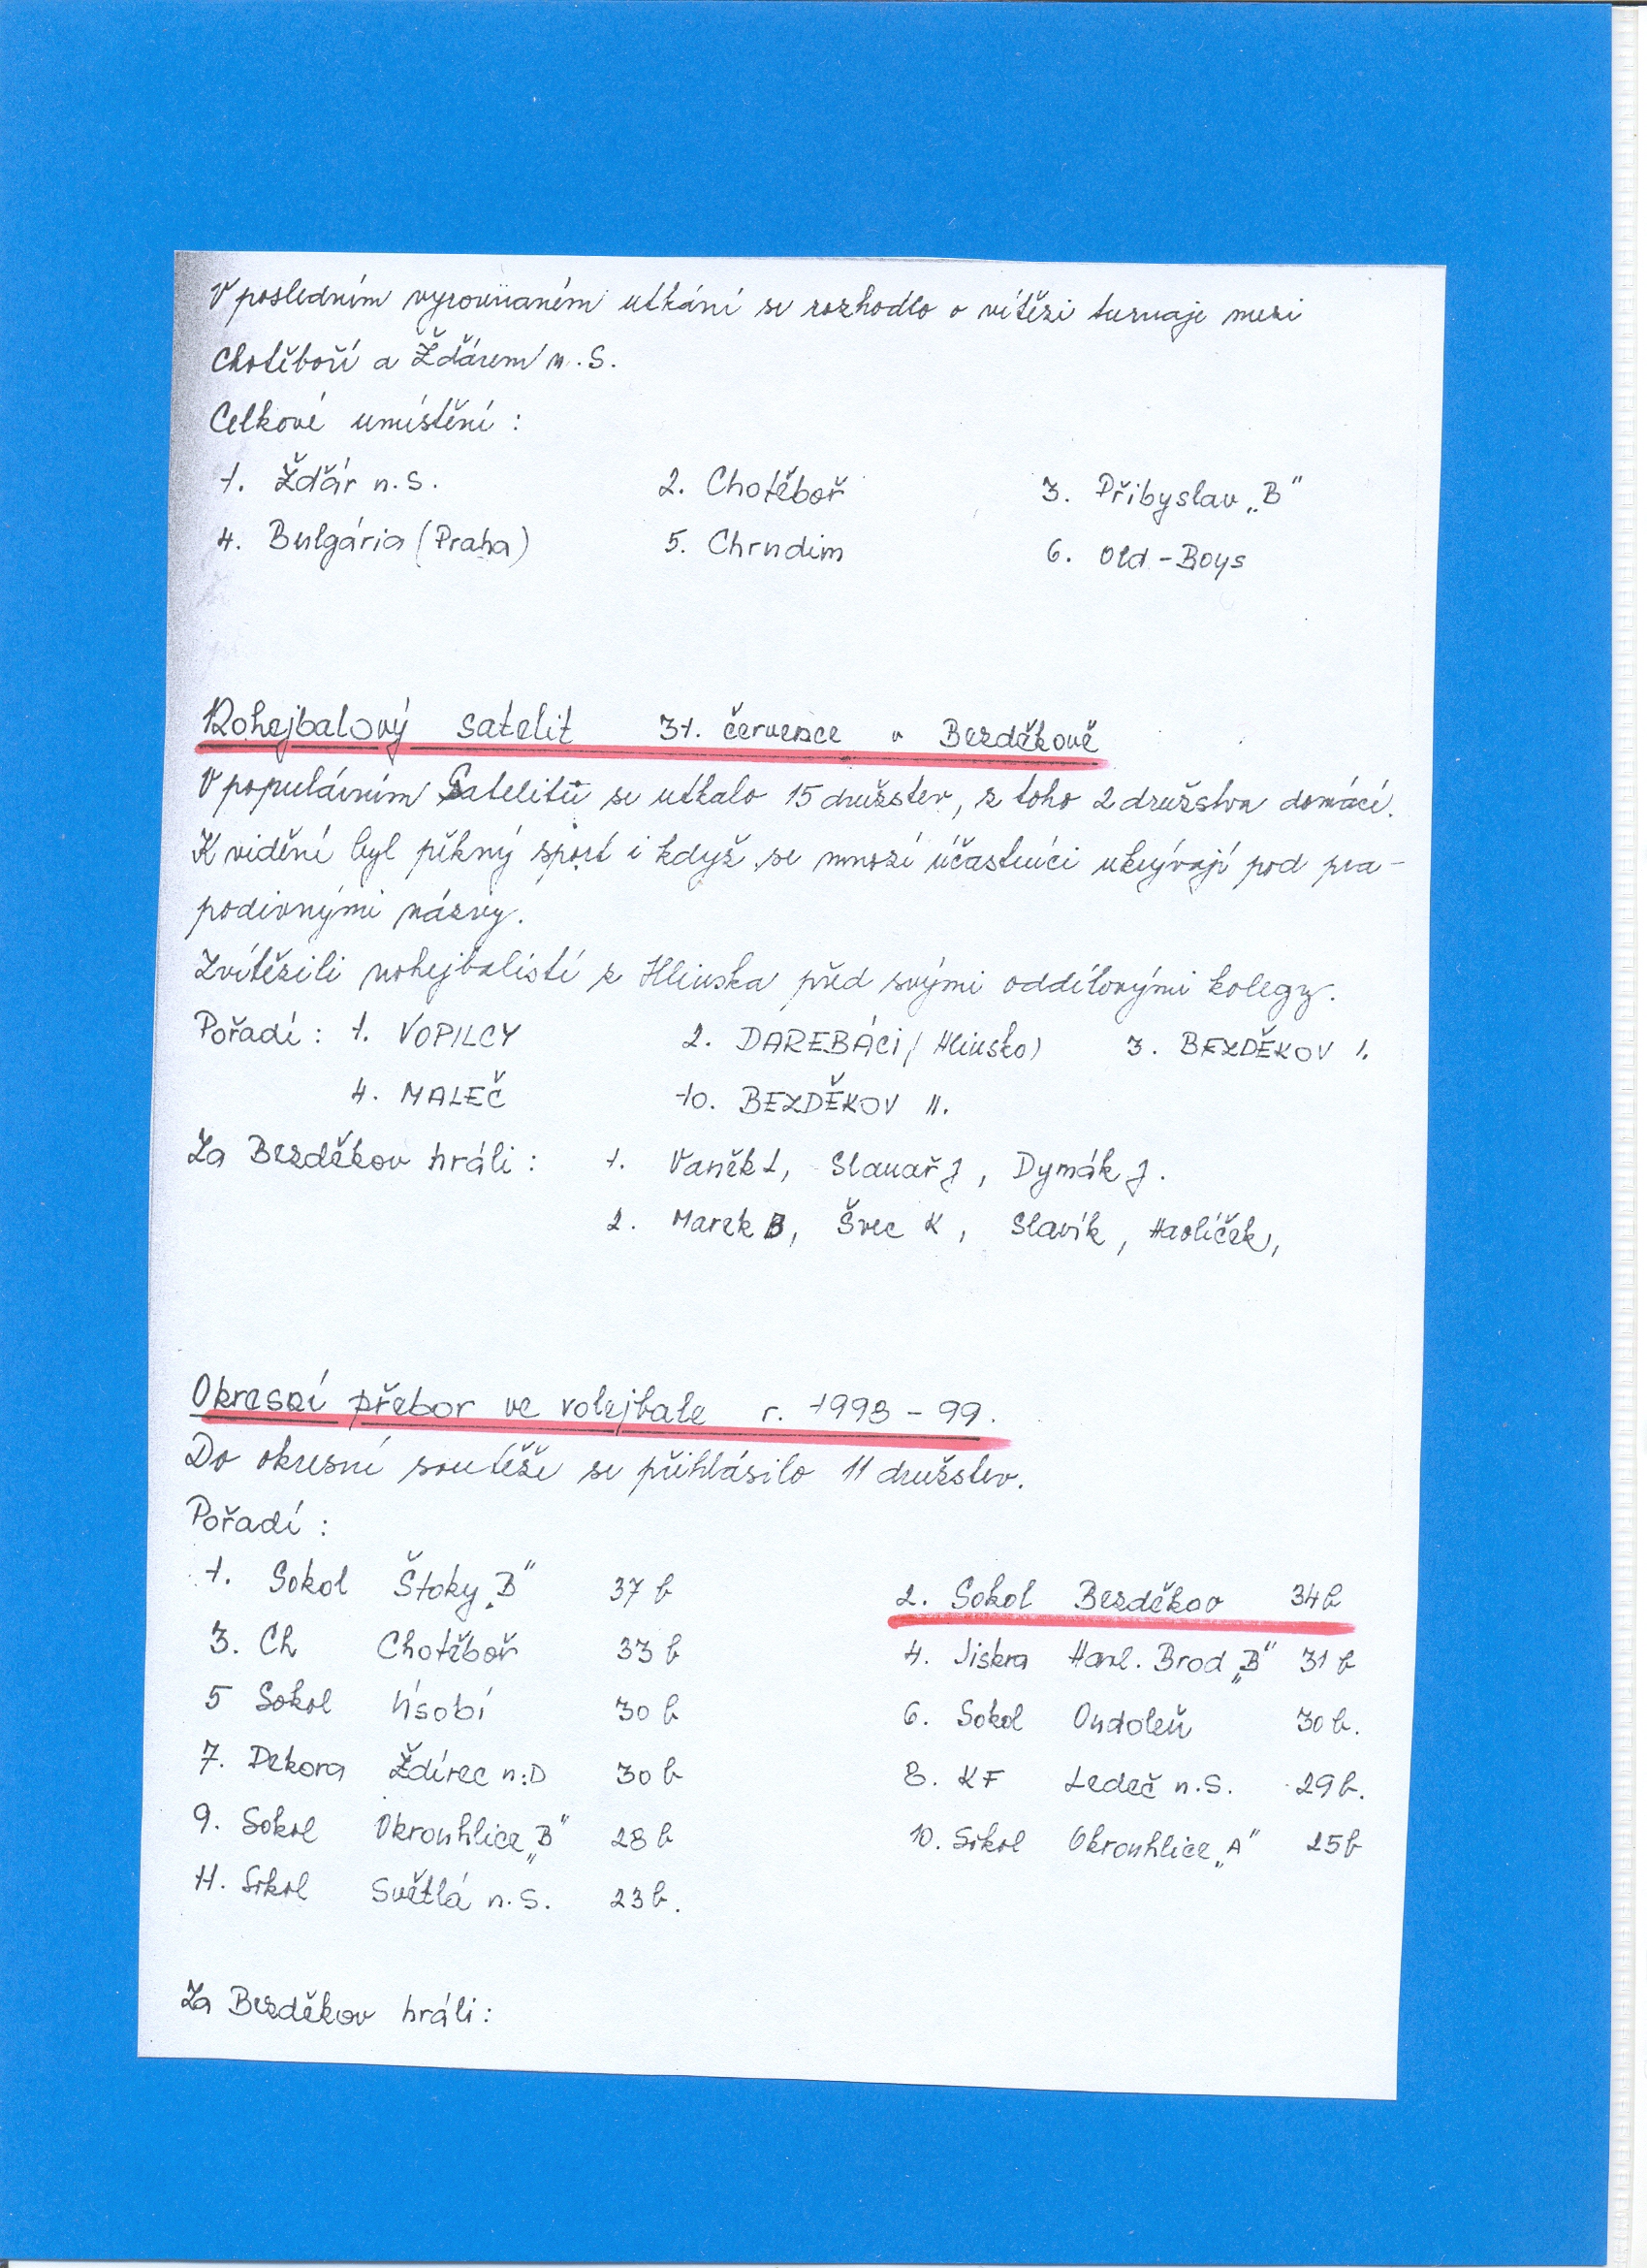 V posledním vyrovnaném utkání se rozhodlo o vítězi turnaje mezi
Chotěboří a Žďárem n.S.
Celkové umístění :
1. Žďár n.S. 2. Chotěboř 3. Přibyslav „B"
4. Bulgária (Praha) 5. Chrudim 6. Old-Boys
Nohejbalový satelit 31. července v Bezděkově
V populárním Satelitu se utkalo 15 družstev, z toho 2 družstva domácí.
K vidění byl pěkný sport i když se mnozí účastníci ukrývají pod pra-
podivnými názvy.
Zvítězili nohejbalisti z Hlinska před svými oddílovými kolegy.
Pořadí : 1. VOPILCY 2. DAREBÁCI (Hlinsko) 3. BEZDĚKOV I.
4. MALEČ 10. BEZDĚKOV II.
Za Bezděkov hráli : 1. Vaněk L, Slanař J, Dymák J.
2. Marek B, Švec K, Slavík, Havlíček,
Okresní přebor ve volejbale r. 1998-99.
Do okresní soutěže se přihlásilo 11 družstev.
Pořadí :
1. Sokol Štoky „B" 37 b 2. Sokol Bezděkov 34 b
3. Ch Chotěboř 33 b 4. Jiskra Havl. Brod „B" 31 b
5 Sokol Úsobí 30 b 6. Sokol Ondoleň 30 b.
7. Dekora Ždírec n.D 30 b 8. KF Ledeč n.S. 29 b.
9. Sokol Okrouhlice „B" 28 b 10. Sokol Okrouhlice „A" 25 b
11. Sokol Světlá n.S. 23 b.
Za Bezděkov hráli :